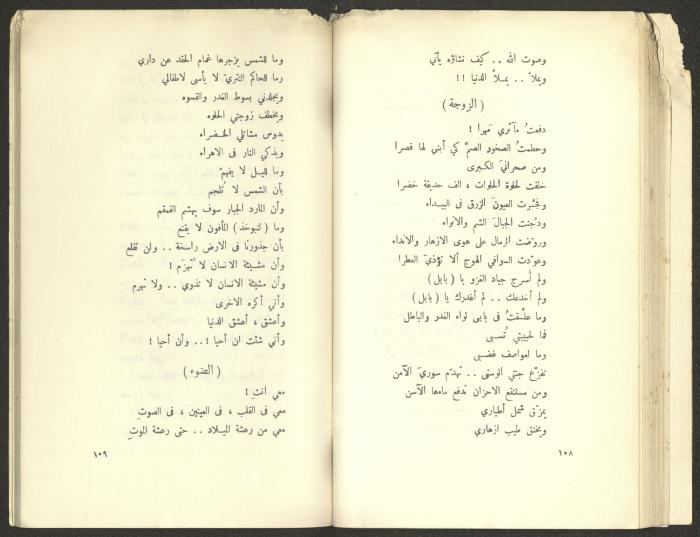 وصوت الله .. كيف نشاؤه يأتي
ويملأ .. يملأ الدنيا !!
( الزوجة )
دفعتُ مآثري مهرا !
وحطمتُ الصخور الصمّ كي أبني لها قصرا
ومن صحرائيَ الكبرى
خلقت لحلوة الحلوات ، الف حديقة خضرا
وفجّرت العيونَ الزرق في البيداء
ودجّنت الجبالَ الشم والانواء
وروّضت الرمال على هوى الازهار والانداء
وعوّدت السوافي الهوج ألا تؤذيَ العطرا
ولم أسرج جياد الغزو يا ( بابل )
ولم أخدعك .. لم أغدرك يا ( بابل )
وما علّقتُ في بابي لواء الغدر والباطل
فما لحبيبتي تُسبى
وما لعواصف غضبى
تفزّع جنتي الوسنى .. تهدّم سوريَ الآمن
ومن مستنقع الاحزان تدفع ماءها الآسن
يمزّق شمل أطياري
ويخنق طيب ازهاري
١٠٨
وما للشمس يزجرها غمام الحقد عن داري
وما للحاكم التتريّ لا يأسى لاطفالي
ويجلدني بسوط الغدر والقسوه
ويخطف زوجتي الحلوه
يدوس مشاتلي الخضراء
ويذكي النار في الاهراء
وما لليل لا يفهمْ
بأن الشمس لا تُلجم
وأن المارد الجبار سوف يهشم القمقم
وما ( لنبوخذ ) المأفون لا يقنع
بأن جذورنا في الارض راسخة .. ولن تقلع
وأن مشيئة الانسان لا تُهزَم !
وأن مشيئة الانسان لا تذوي .. ولا تهرم
وأني أكره الاخرى
وأعشق ، أعشق الدنيا
وأني شئت ان أحيا !.. وأن أحيا !
( الضوء )
معي انتِ !
معي في القلب ، في العينين ، في الصوتِ
معي من رعشة الميلاد .. حتى رعشة الموتِ
١٠٩